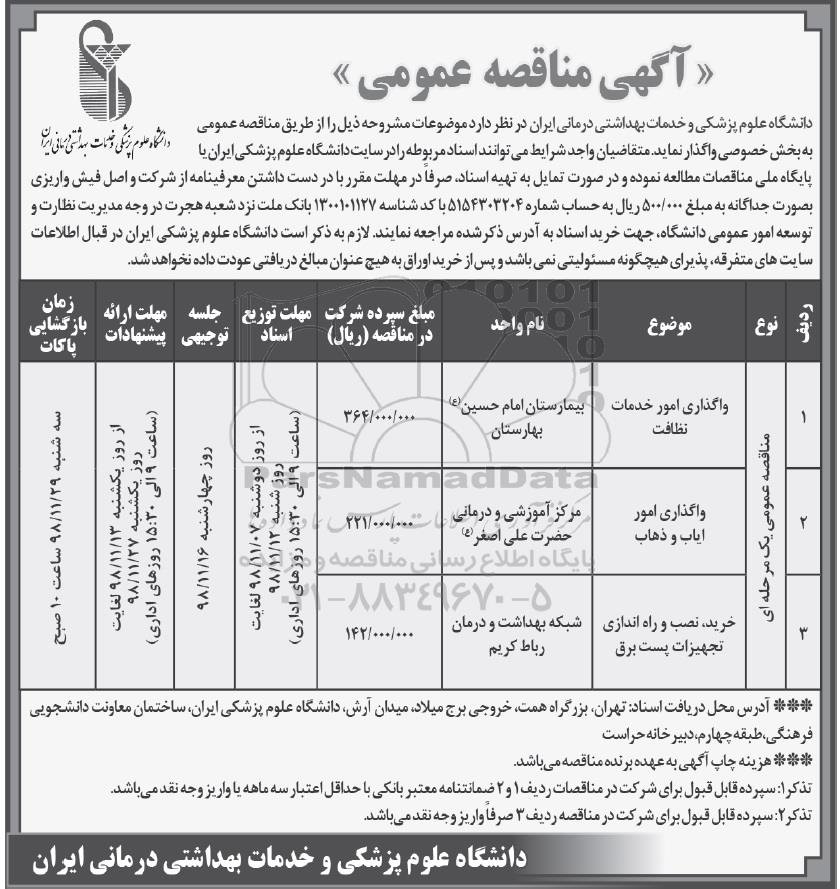 « آگهی مناقصه عمومی »
دانشگاه علوم پزشکی و خدمات بهداشتی درمانی ایران
دانشگاه علوم پزشکی و خدمات بهداشتی درمانی ایران در نظر دارد موضوعات مشروحه ذیل را از طریق مناقصه عمومی
به بخش خصوصی واگذار نماید. متقاضیان واجد شرایط می توانند اسناد مربوطه را در سایت دانشگاه علوم پزشکی ایران یا
پایگاه ملی مناقصات مطالعه نموده و در صورت تمایل به تهیه اسناد، صرفاً در مهلت مقرر با در دست داشتن معرفینامه از شرکت و اصل فیش واریزی
بصورت جداگانه به مبلغ ۵۰۰/۰۰۰ ریال به حساب شماره ۵۱۵۴۳۰۳۲۰۴ با کد شناسه ۱۳۰۰۱۰۱۱۲۷ بانک ملت نزد شعبه هجرت در وجه مدیریت نظارت و
توسعه امور عمومی دانشگاه، جهت خرید اسناد به آدرس ذکر شده مراجعه نمایند. لازم به ذکر است دانشگاه علوم پزشکی ایران در قبال اطلاعات
سایت های متفرقه، پذیرای هیچگونه مسئولیتی نمی باشد و پس از خرید اوراق به هیچ عنوان مبالغ دریافتی عودت داده نخواهد شد.
ردیف
نوع
موضوع
نام واحد
مبلغ سپرده شرکت
در مناقصه (ریال)
مهلت توزیع
اسناد
جلسه
توجیهی
مهلت ارائه
پیشنهادات
زمان
بازگشایی
پاکات
۱
مناقصه عمومی یک مرحله ای
واگذاری امور خدمات
نظافت
بیمارستان امام حسین (ع)
بهارستان
۳۶۴/۰۰۰/۰۰۰
از روز دوشنبه ۹۸/۱۱/۰۷ لغایت
روز شنبه ۹۸/۱۱/۱۲
(ساعت ۹ الی ۱۵:۳۰ روزهای اداری)
روز چهارشنبه ۹۸/۱۱/۱۶
از روز یکشنبه ۹۸/۱۱/۱۳ لغایت
روز یکشنبه ۹۸/۱۱/۲۷
(ساعت ۹ الی ۱۵:۳۰ روزهای اداری)
سه شنبه ۹۸/۱۱/۲۹ ساعت ۱۰ صبح
۲
واگذاری امور
ایاب و ذهاب
مرکز آموزشی و درمانی
حضرت علی اصغر (ع)
۲۲۱/۰۰۰/۰۰۰
۳
خرید، نصب و راه اندازی
تجهیزات پست برق
شبکه بهداشت و درمان
رباط کریم
۱۴۲/۰۰۰/۰۰۰
ParsNamadData
پایگاه اطلاع رسانی مناقصه و مزایده
۰۲۱-۸۸۳۴۹۶۷۰-۵
*** آدرس محل دریافت اسناد: تهران، بزرگراه همت، خروجی برج میلاد، میدان آرش، دانشگاه علوم پزشکی ایران، ساختمان معاونت دانشجویی
فرهنگی، طبقه چهارم، دبیرخانه حراست
*** هزینه چاپ آگهی به عهده برنده مناقصه می‌باشد.
تذکر۱: سپرده قابل قبول برای شرکت در مناقصات ردیف ۱ و ۲ ضمانتنامه معتبر بانکی با حداقل اعتبار سه ماهه یا واریز وجه نقد می‌باشد.
تذکر۲: سپرده قابل قبول برای شرکت در مناقصه ردیف ۳ صرفاً واریز وجه نقد می‌باشد.
دانشگاه علوم پزشکی و خدمات بهداشتی درمانی ایران